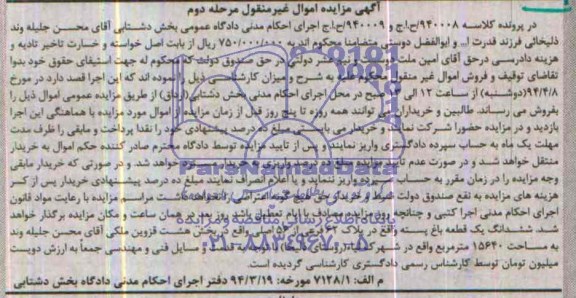 آگهی مزایده اموال غیرمنقول مرحله دوم
در پرونده کلاسه ۹۴۰۰۰۸/ح/ا.ج و ۹۴۰۰۰۹/ح/ا.ج اجرای احکام مدنی دادگاه عمومی بخش دشتابی آقای محسن جلیله وند
ذلیخائی فرزند قدرت ا... و ابوالفضل متضامنا محکوم اند به ریال از بابت اصل خواسته و خسارت تاخیر تادیه و
هزینه دادرسی درحق آقای امین دولتی در حق صندوق دولت که محکوم له جهت استیفای حقوق خود بدوا
تقاضای توقیف و فروش اموال غیر منقول محکوم علیه به شرح و میزان ذیل نموده اند که این اجرا قصد دارد در مورخ
۹۴/۴/۸(دوشنبه) از ساعت ۱۲ الی صبح در محل اجرای احکام مدنی بخش دشتابی از طریق مزایده عمومی اموال ذیل را
بفروش می رساند. طالبین و خریداران می توانند همه روزه تا پنج روز قبل از زمان مزایده از اموال مورد مزایده با هماهنگی این اجرا
بازدید و در مزایده حضورا شرکت نمایند و خریدار می بایستی مبلغ ده درصد پیشنهادی خود را نقدا پرداخت و مابقی را ظرف مدت
مهلت یک ماه به حساب سپرده دادگستری واریز نمایند و پس از تایید مزایده توسط دادگاه محترم صادر کننده حکم اموال به خریدار
منتقل خواهد شد و در صورت عدم تایید مزایده مبلغ ده درصد واریزی به خریدار مسترد خواهد شد. و در صورتی که خریدار مابقی
وجه مزایده را در زمان مقرر به حساب سپرده واریز ننمایند و یا اعلام انصراف نمایند مبلغ ده درصد پیشنهادی خریدار پس از کسر
هزینه های مزایده به نفع صندوق دولت ضبط و خریدار حق هیچ گونه اعتراضی را نخواهد داشت مراسم مزایده با رعایت مواد قانون
اجرای احکام مدنی اجرا و چنانچه روز مزایده مصادف با ایام تعطیل باشد روز بعد در همان ساعت و مکان مزایده برگذار خواهد
شد. ششدانگ یک قطعه باغ پسته واقع در پلاک فرعی از اصلی واقع در بخش هشت قزوین ملکی آقای محسن جلیله وند
به مساحت ۱۵۶۴۰ مترمربع واقع در با توجه به و سایل فنی و مهندسی جمعاً به ارزش دویست
میلیون تومان توسط کارشناس رسمی دادگستری کارشناسی گردیده است.
م الف: ۷۱۲۸/۱ مورخه: ۹۴/۳/۱۹ دفتر اجرای احکام مدنی دادگاه بخش دشتابی
ParsNamadData
۰۲۱-۸۸۳۴۹۶۷۰-۵